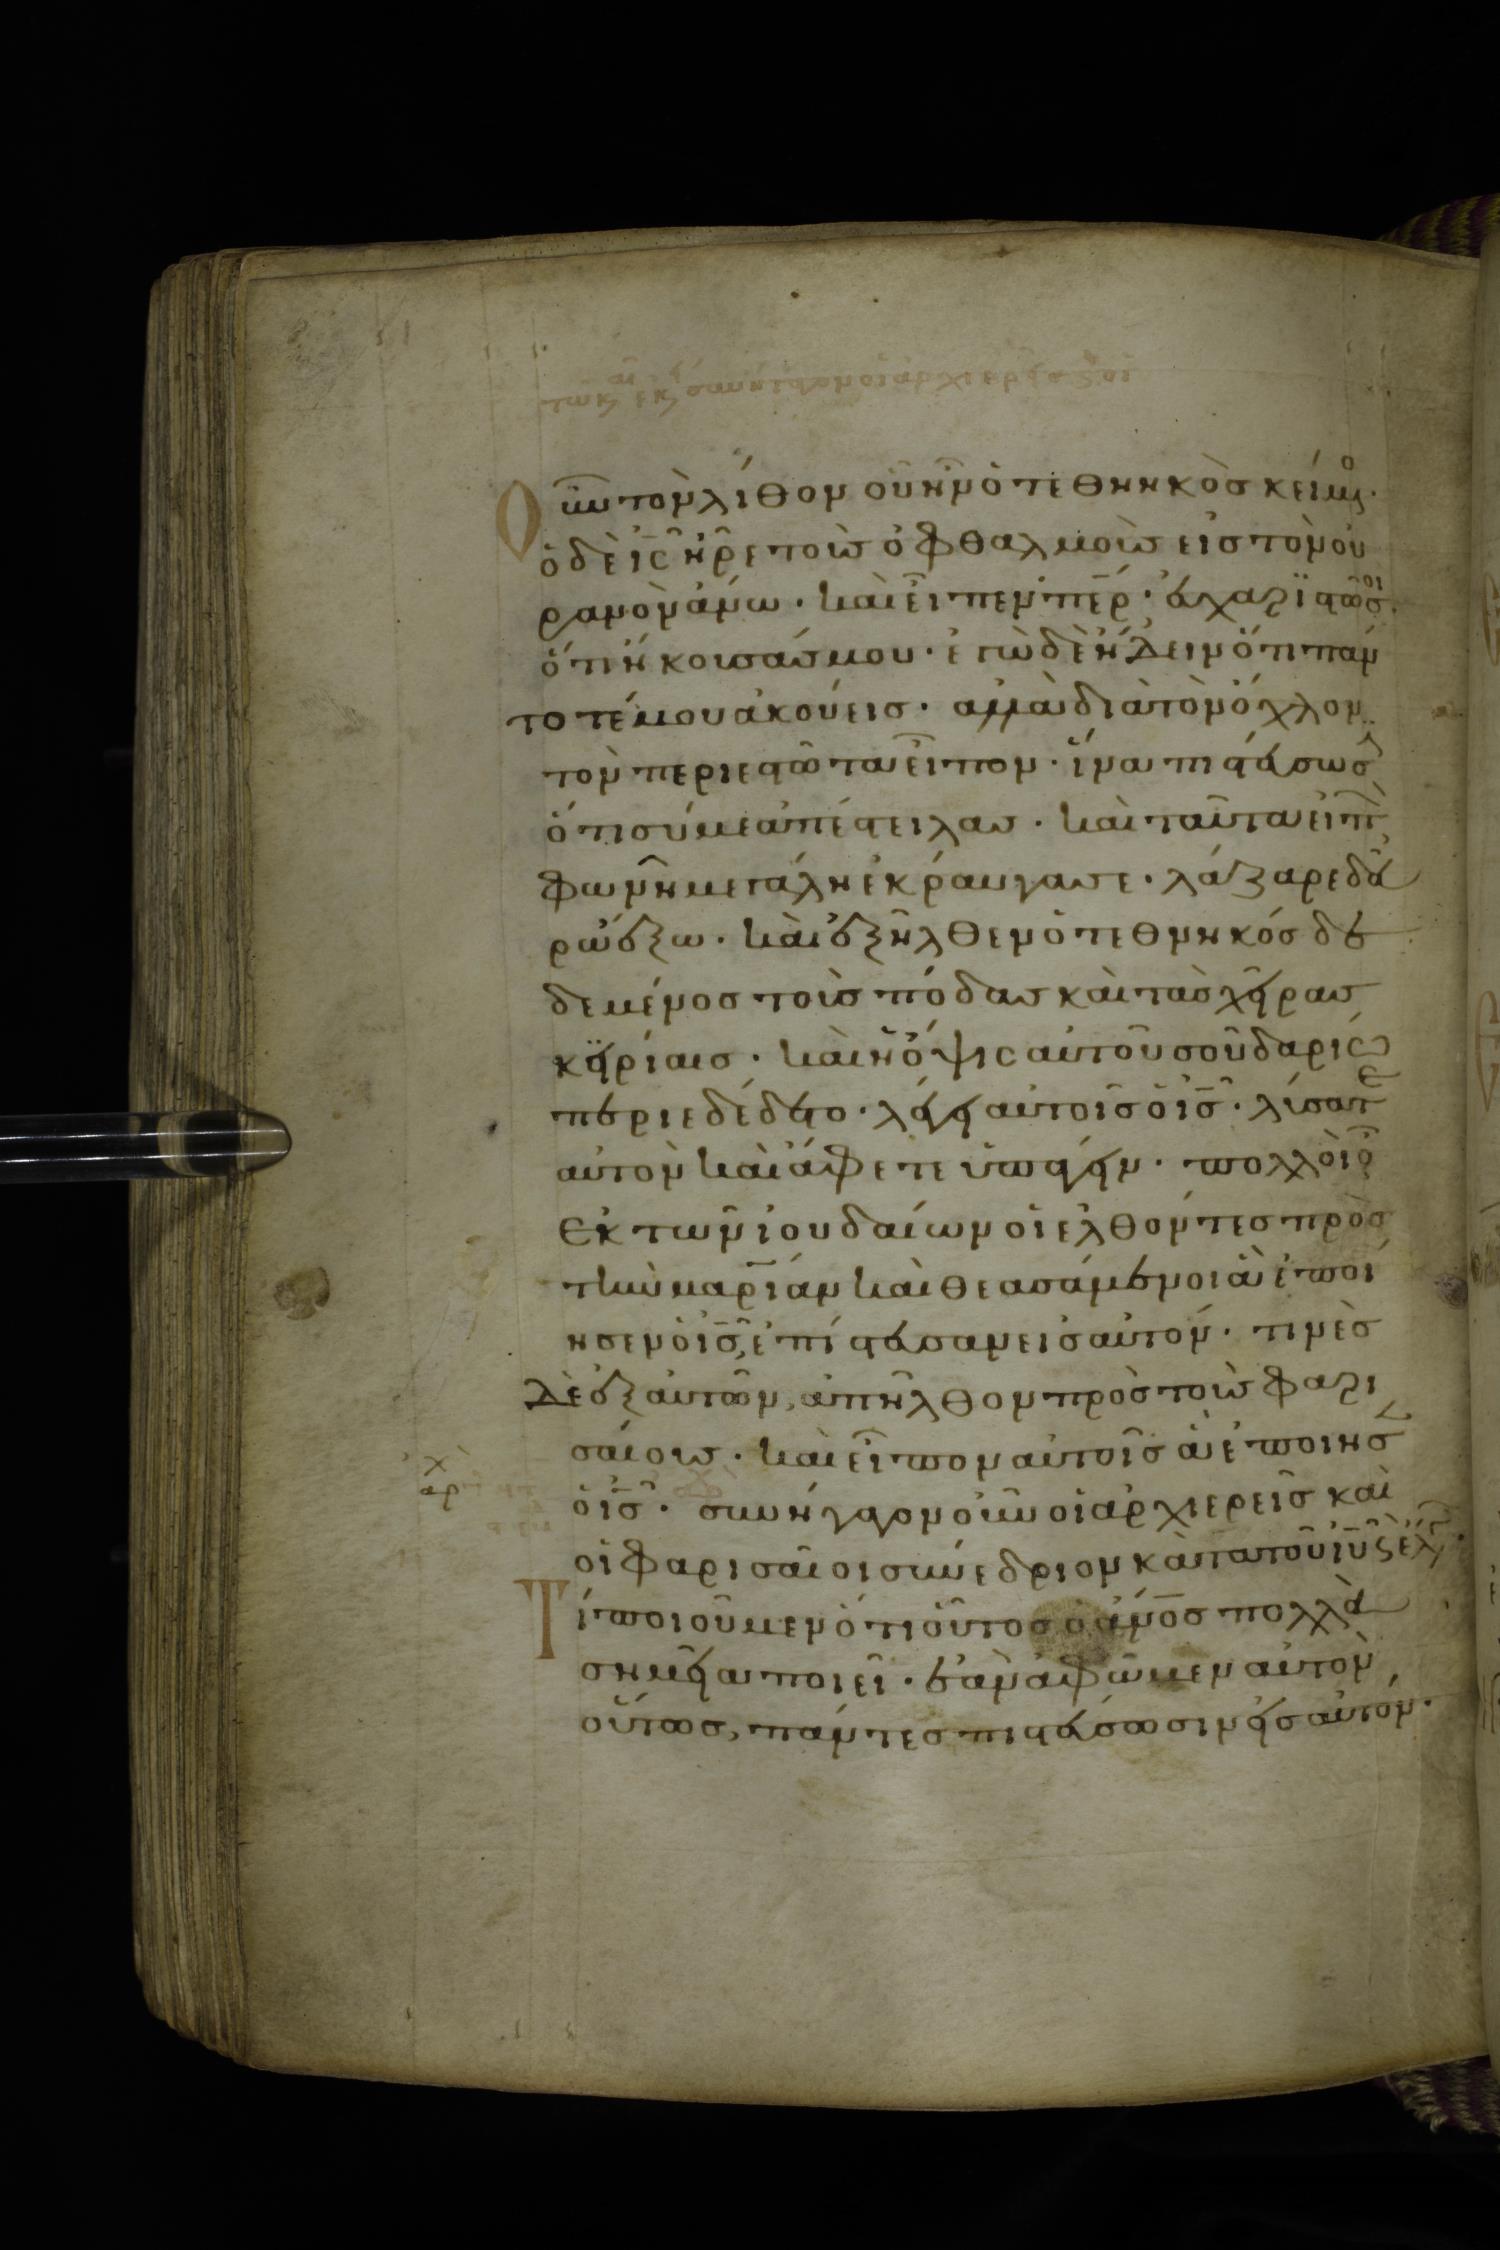 Οὖν τὸν λίθον οὗ ἦν ὁ τεθνηκὼς κείμενος·
ὁ δὲ ις ἦρε τοὺς ὀφθαλμοὺς εἰς τὸν οὐ
ρανὸν ἄνω· καὶ εἶπεν· περ· εὐχαριστῶ σοι
ὅτι ἤκουσάς μου· ἐγὼ δὲ ἤδειν ὅτι πάν
τοτέ μου ἀκούεις· ἀλλὰ διὰ τὸν ὄχλον
τὸν περιεστῶτα εἶπον· ἵνα πιστεύσωσιν
ὅτι σύ με ἀπέστειλας· καὶ ταῦτα εἰπὼν
φωνῆ μεγάλη ἐκραύγασε· λάζαρε δεῦ
ρω ἔξω· καὶ ἐξῆλθεν ὁ τεθνηκὼς δε
δεμένος τοὺς πόδας καὶ τὰς χεῖρας
κηρίαις· καὶ ἡ ὄψις αὐτοῦ σουδαρίω
περιεδέδετο· λέγει αὐτοῖς ὁ ις· λύσατε
αὐτὸν καὶ ἄφετε ὑπάγειν· πολλοὶ οὖν
ἐκ τῶν ἰουδαίων οἱ ἐλθόντες πρὸς
τὴν μαρίαν καὶ θεασάμενοι ἃ ἐποί
ησεν ὁ ις, ἐπίστευσαν εἰς αὐτόν· τινὲς
δὲ ἐξ αὐτῶν, ἀπῆλθον πρὸς τοὺς φαρι
σαίους· καὶ εἶπον αὐτοῖς ἃ ἐποίησεν
ὁ ις· συνήγαγον οὖν οἱ ἀρχιερεῖς καὶ
οἱ φαρισαῖοι συνέδριον κατὰ τοῦ ιυ καὶ ἔλεγον·
Τί ποιοῦμεν ὅτι οὗτος ὁ ανος πολλὰ
σημεῖα ποιεῖ· ἐὰν ἀφῶμεν αὐτὸν
οὕτως, πάντες πιστεύσωσιν εἰς αὐτόν·